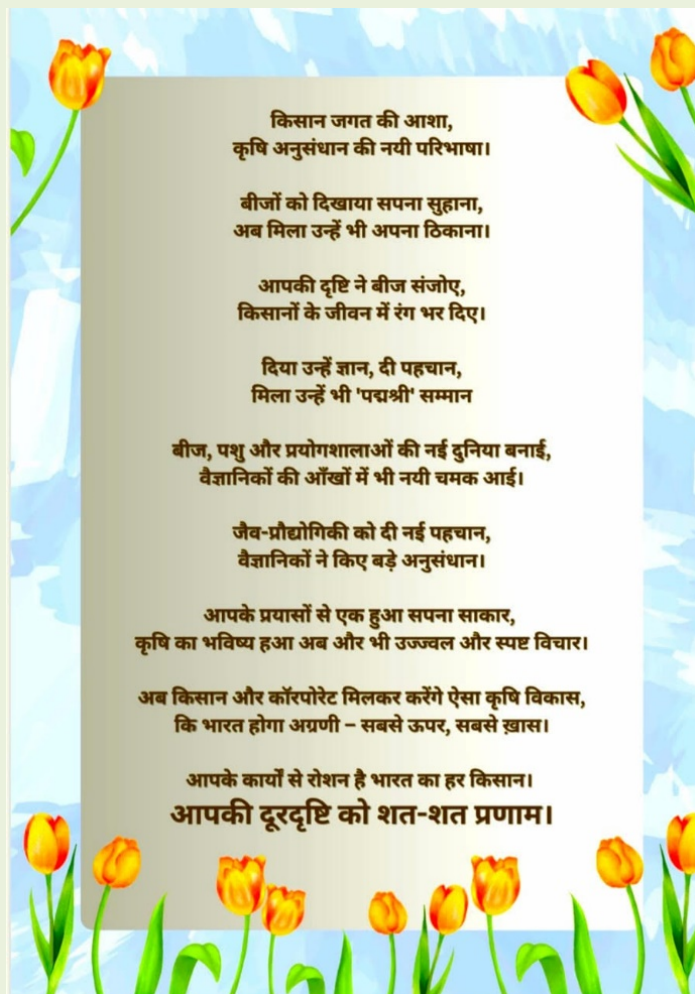 किसान जगत की आशा,
कृषि अनुसंधान की नयी परिभाषा।
बीजों को दिखाया सपना सुहाना,
अब मिला उन्हें भी अपना ठिकाना।
आपकी दृष्टि ने बीज संजोए,
किसानों के जीवन में रंग भर दिए।
दिया उन्हें ज्ञान, दी पहचान,
मिला उन्हें भी 'पद्मश्री' सम्मान
बीज, पशु और प्रयोगशालाओं की नई दुनिया बनाई,
वैज्ञानिकों की आँखों में भी नयी चमक आई।
जैव-प्रौद्योगिकी को दी नई पहचान,
वैज्ञानिकों ने किए बड़े अनुसंधान।
आपके प्रयासों से एक हुआ सपना साकार,
कृषि का भविष्य हआ अब और भी उज्ज्वल और स्पष्ट विचार।
अब किसान और कॉरपोरेट मिलकर करेंगे ऐसा कृषि विकास,
कि भारत होगा अग्रणी – सबसे ऊपर, सबसे ख़ास।
आपके कार्यों से रोशन है भारत का हर किसान।
आपकी दूरदृष्टि को शत-शत प्रणाम।